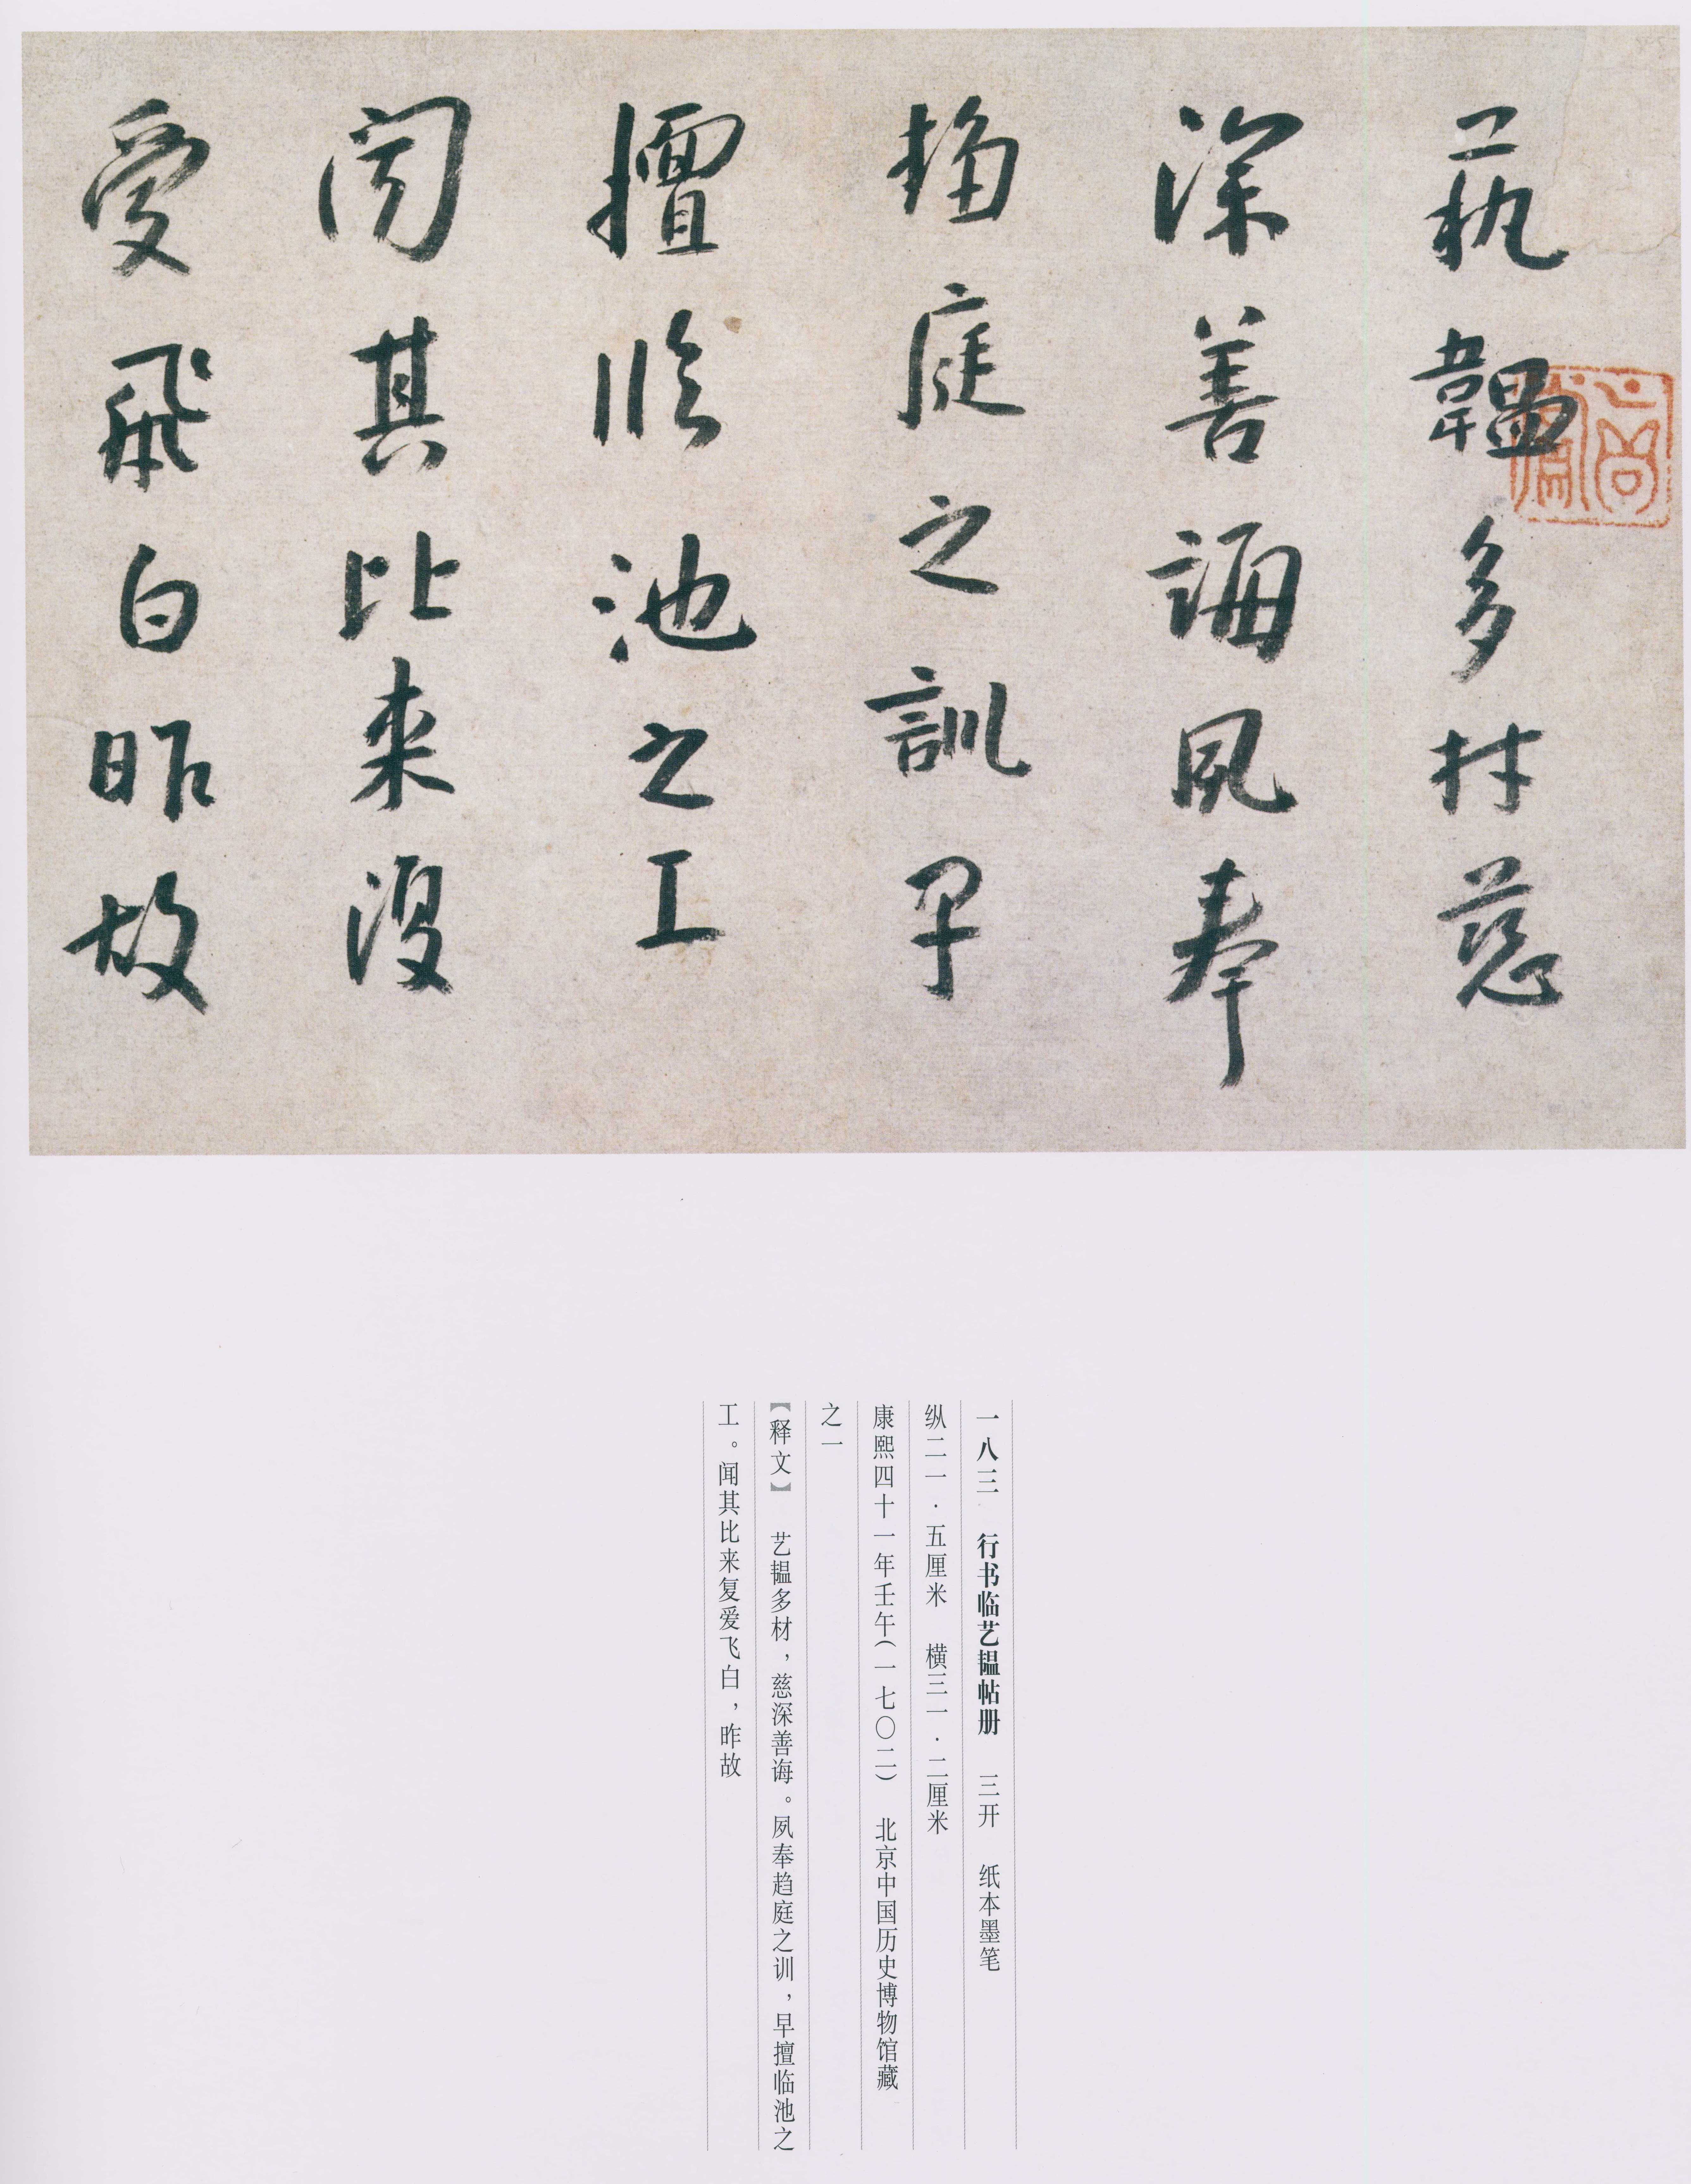 藝韞多材慈
深善誨夙奉
趋庭之訓早
擅临池之工
闻其比来復
爱飛白昨故
一八三 行书临艺韫帖册 三开 纸本墨笔
纵二一·五厘米 横三一·二厘米
康熙四十一年壬午(一七〇二) 北京中国历史博物馆藏
之一
【释文】 艺韫多材，慈深善诲。夙奉趋庭之训，早擅临池之
工。闻其比来复爱飞白，昨故